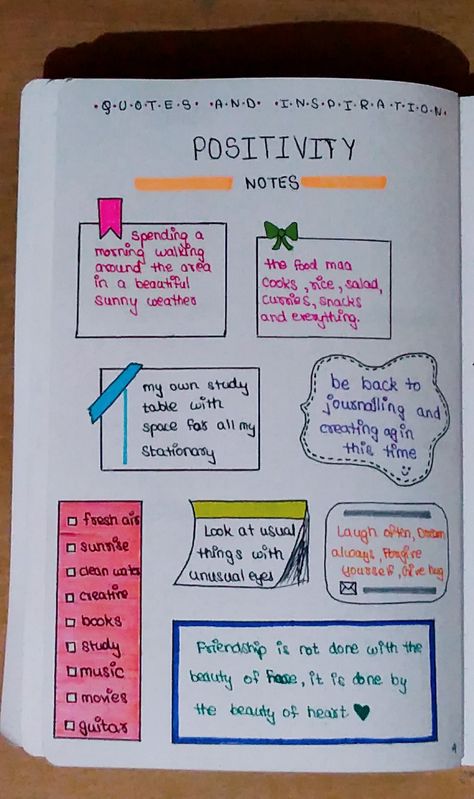 QUOTES AND INSPIRATION
POSITIVITY
NOTES
spending a
morning walking
around the area
in a beautiful
sunny weather
the food maa
cooks, rice, salad,
curries, snacks
and everything.
my own study
table with
space for all my
stationary
be back to
journalling and
creating agin
this time
fresh air
sunrise
clean water
creative
books
study
music
movies
guitar
Look at usual
things with
unusual eyes
Laugh often, Dream
always, Forgive
yourself, Give hug
Friendship is not done with the
beauty of face, it is done by
the beauty of heart ♥